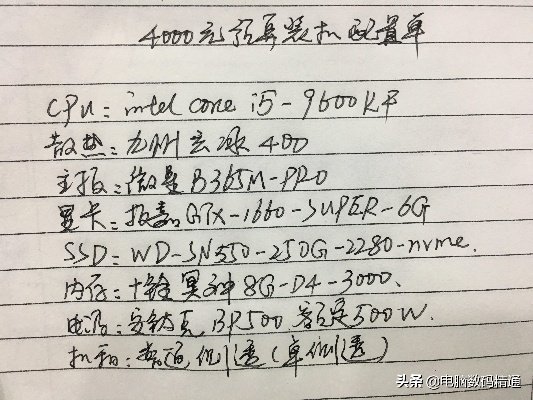 4000元预算装机配置单
CPU：intel core i5-9600KF
散热：九州玄冰400
主板：微星B365M-PRO
显卡：报嘉GTX-1660-SUPER-6G
SSD：WD-SN550-250G-2280-nvme.
内存：十铨冥神8G-D4-3000.
电源：安钛克BP500 额定500W.
机箱：普通侧透（单侧透）
头条 @电脑数码精通